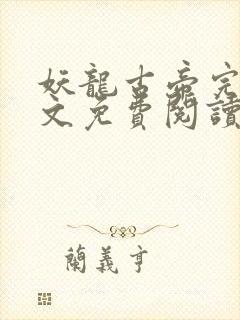 妖龍古帝完
文免費閱讀
蘭義亨